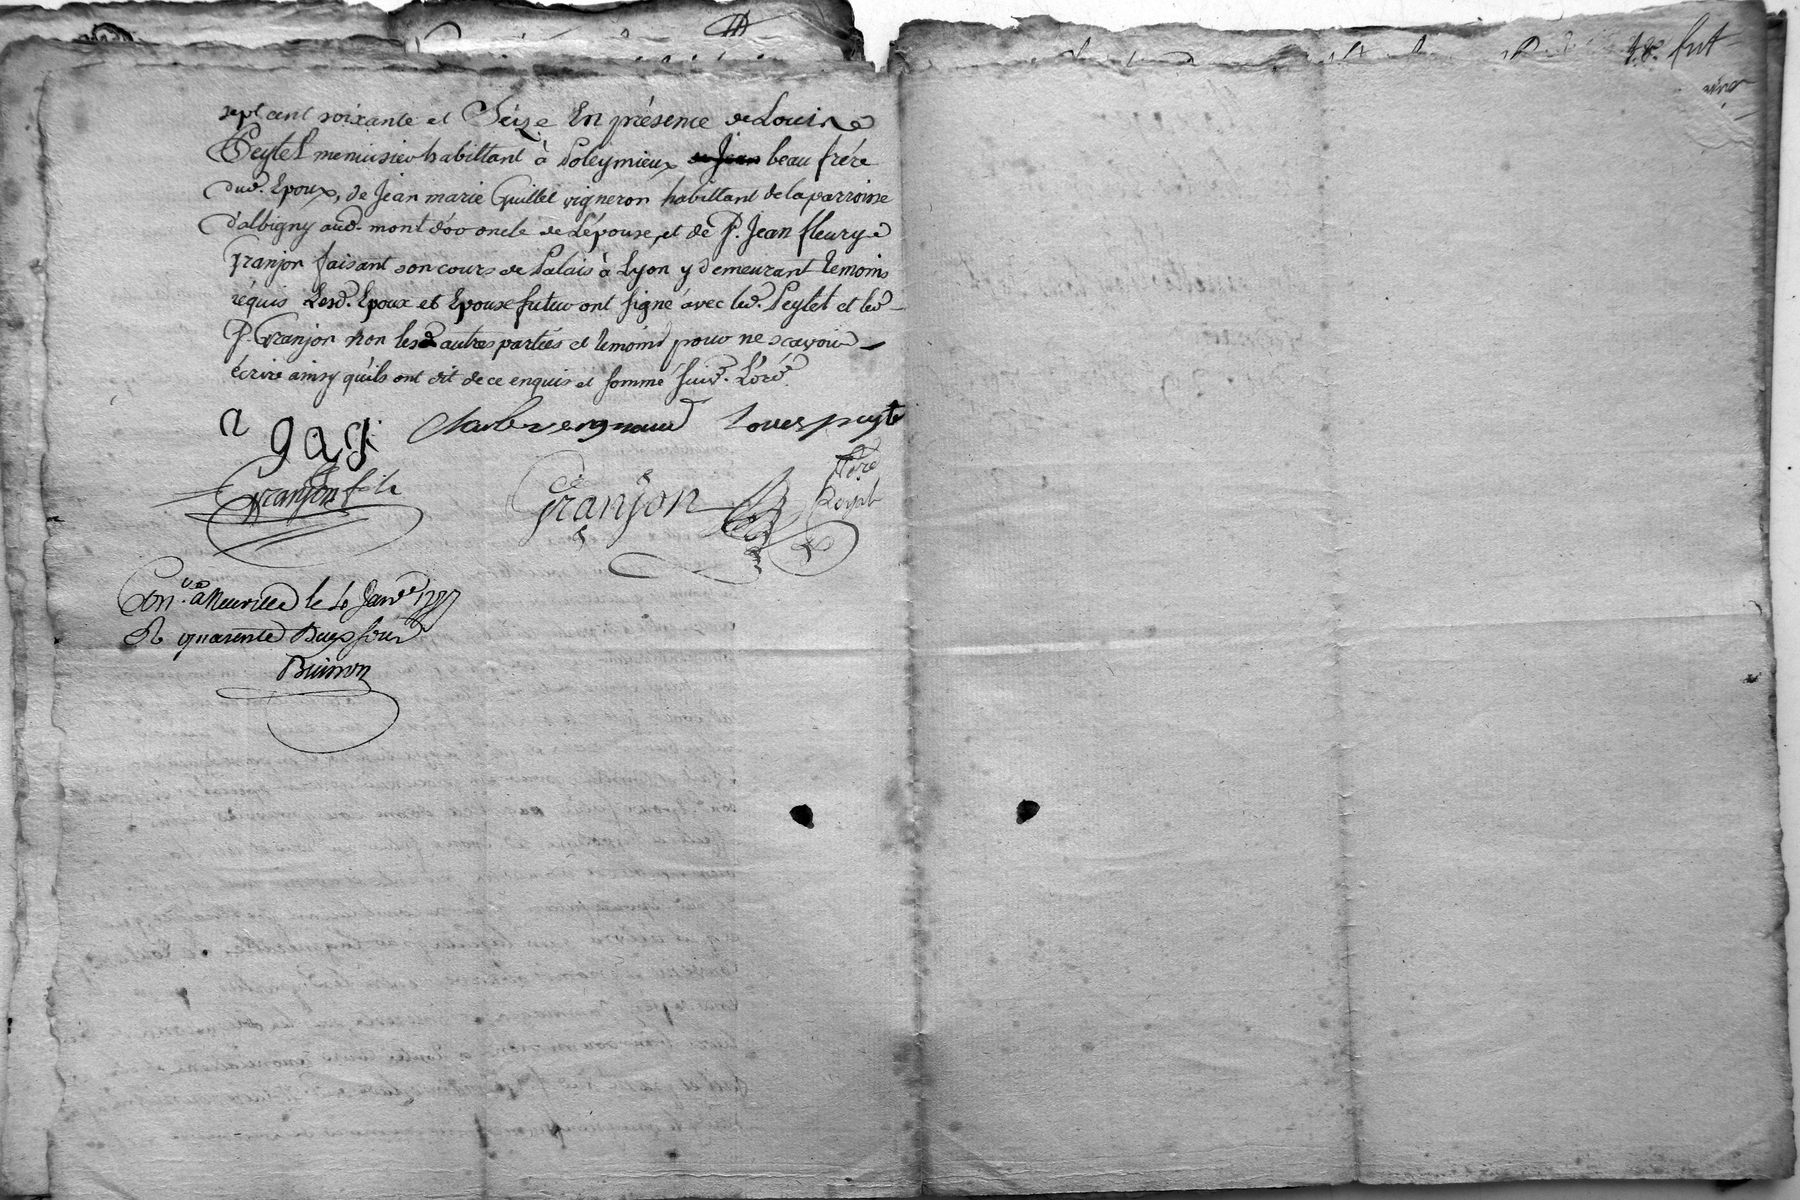 sept cent soixante et Seize En présence de Louis
Peytel menuisier habittant à Poleymieux de Jean beau frére
dud. Epoux, de Jean marie Guillet vigneron habittant de la parroisse
d'albigny aud. mont d'or oncle de L'épouse, et de Sr. Jean fleury
Granjon faisant son cours de Palais à Lyon y demeurant temoins
réquis Lesd. Epoux et Epouse futur ont signé avec led. Peytel et led.
Sr. Granjon non les autres parties et temoins pour ne scavoir
écrire ainsy qu'ils ont dit de ce enquis et sommé suivt. L'ord.
Granjon fils
Granjon
Con. à Neuville le 4 Janv. 1777
R quarente Deux sous
Buisson